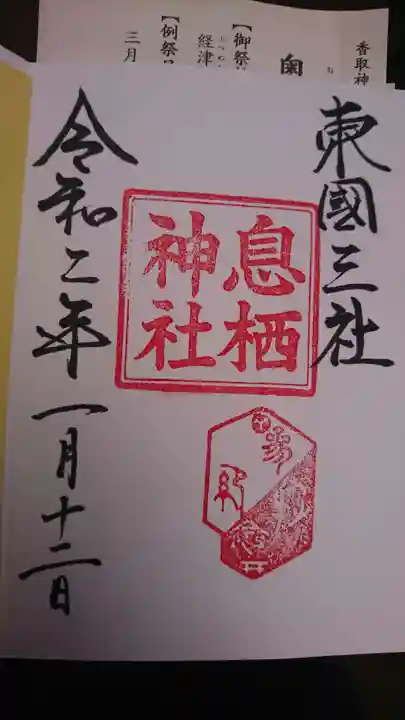 香取神
【御祭
経津
【例祭
三月
東國三社
息栖
神社
令和二年一月十二日